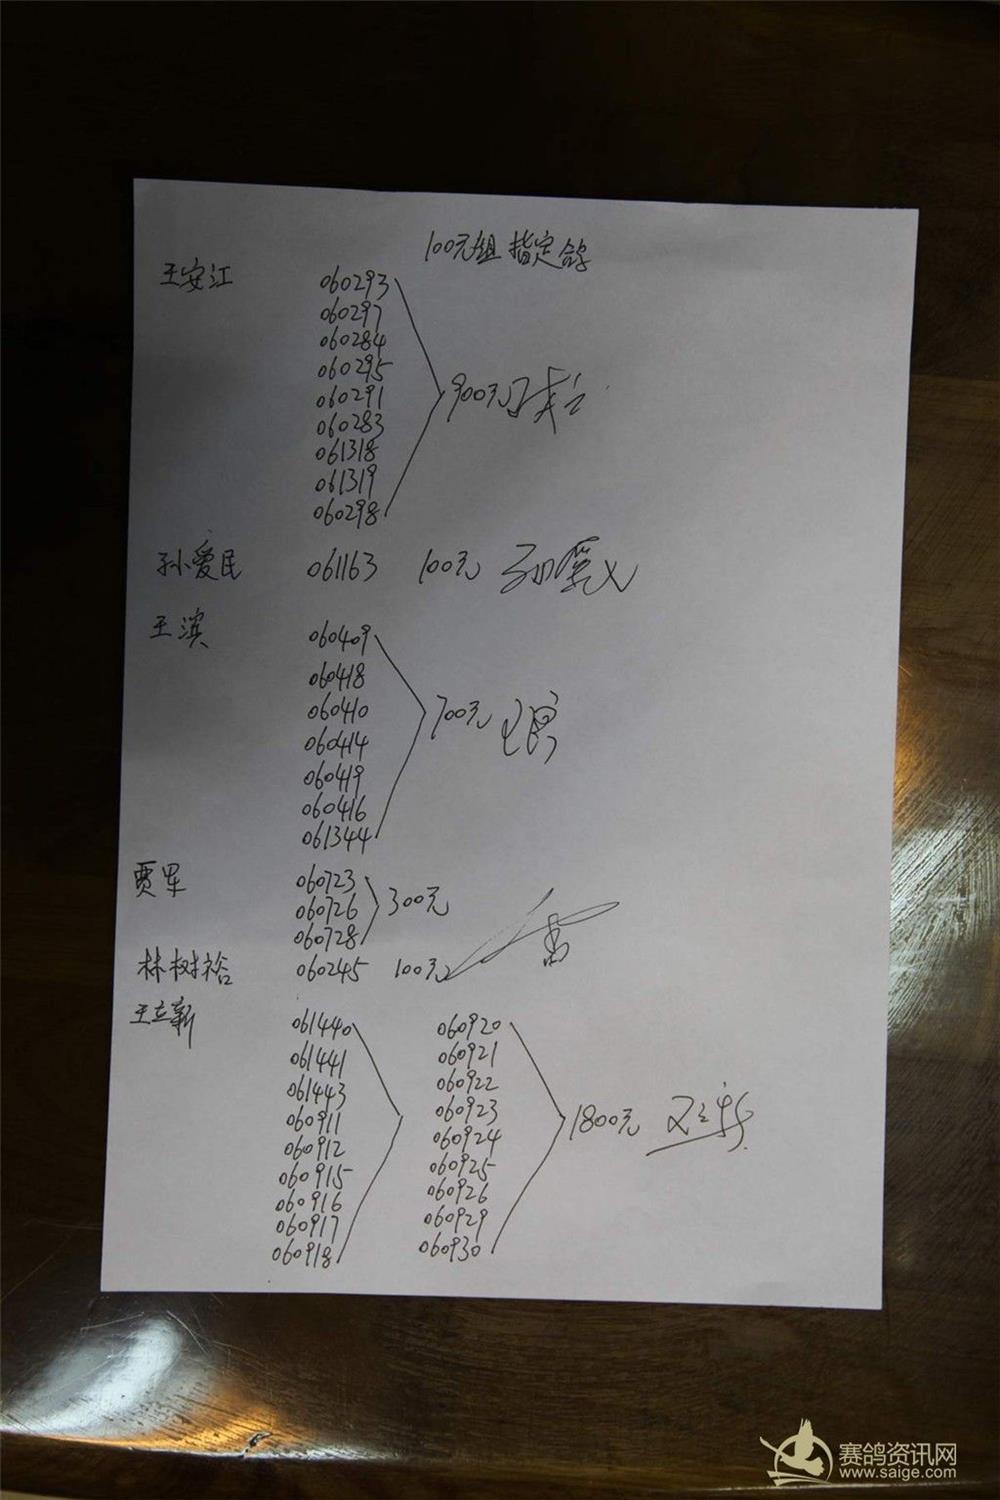 100元组 指定鸽
王安江 060293
060297
060284
060295
060291 900元
060283
061318
061319
060298
孙爱民 061163 100元
王滨 060409
060418
060410 700元
060414
060419
060416
061344
贾军 060723
060726 300元
060728
林树裕 060245 100元
王立新 061440 060920
061441 060921
061443 060922
060911 060923 1800元 王立新
060912 060924
060915 060925
060916 060926
060917 060929
060918 060930
赛鸽资讯网
www.saige.com